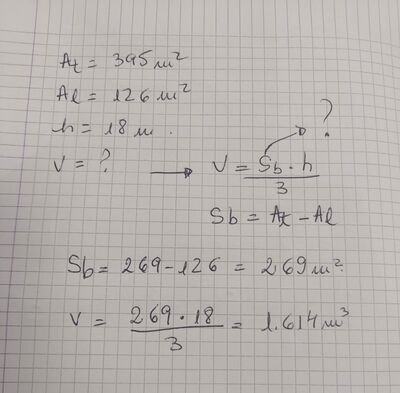 At = 395 m²
Al = 126 m²
h = 18 m.
V = ? → V = Sb · h / 3
?
Sb = At - Al
Sb = 269 - 126 = 269 m².
V = 269 · 18 / 3 = 1.614 m³